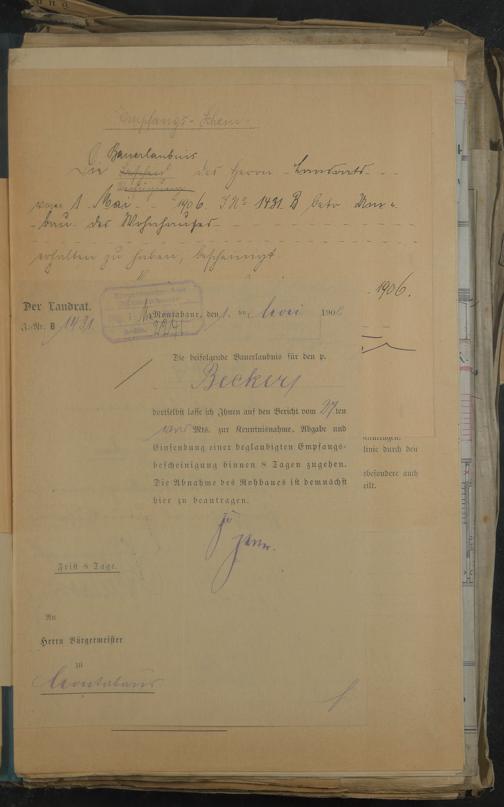 Empfangs-Schein.
Die Bauerlaubnis des Herrn Landrats
vom 1. Mai 1906. J. No 1431 B betr. Um-
bau des Wohnhauses
erhalten zu haben, bescheinigt
1906.
Der Landrat.
J.-Nr. B 1431
Montabaur, den 1. Mai 1906
Die beifolgende Bauerlaubnis für den p.
Becker
dortselbst lasse ich Ihnen auf den Bericht vom 27ten
Mts. zur Kenntnisnahme, Abgabe und
Einsendung einer beglaubigten Empfangs-
bescheinigung binnen 8 Tagen zugehen.
Die Abnahme des Rohbaues ist demnächst
hier zu beantragen.
linie durch den
sbesondere auch
eilt.
Frist 8 Tage.
An
Herrn Bürgermeister
zu
Montabaur